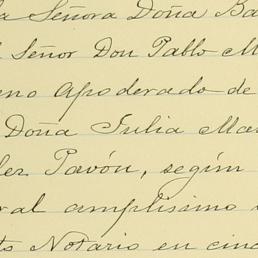 la Señora Doña Ba
l Señor Don Pablo M
eno Apoderado de
Doña Julia Mar
lez Pavón, según
ral amplísimo
to Notario en cinc